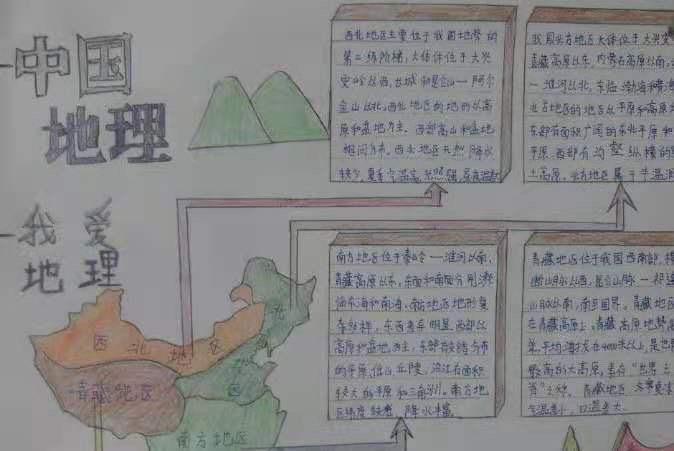 中国
地理
我爱
地理
西北地区主要位于我国地势的
第二级阶梯,大体位于大兴
安岭以西,长城和昆仑山一阿尔
金山以北,西北地区的地形以高
原和盆地为主。西部高山和盆地
相间分布。西北地区天然降水
较少,夏季气温高,光照强,昼夜温差
我国北方地区大体位于大兴安
青藏高原以东,内蒙古高原以南,
一淮河以北,东临渤海和黄海
北方地区的地形以平原和高原为
东部有面积广阔的东北平原和
平原,西部有沟壑纵横的
土高原。北方地区属于半温
南方地区位于秦岭一淮河以南,
青藏高原以东,东面和南面分别濒
临东海和南海。南方地区地形复
杂多样,东西差异明显。西部以
高原和盆地为主,东部交错分布
的平原,低山丘陵,沿江有面积
较大的平原和三角洲。南方地
区纬度较低,降水丰富
青藏地区位于我国西南部,横
断山脉以西,昆仑山脉一祁连
山脉以南,南至国界。青藏地区
在青藏高原上,青藏高原地势高
平均海拔在4000米以上,是世界
最高的大高原,素有“世界
脊”之称。青藏地区
气温低,日温差大。
西北地区
青藏地区
北方
区
南方地区